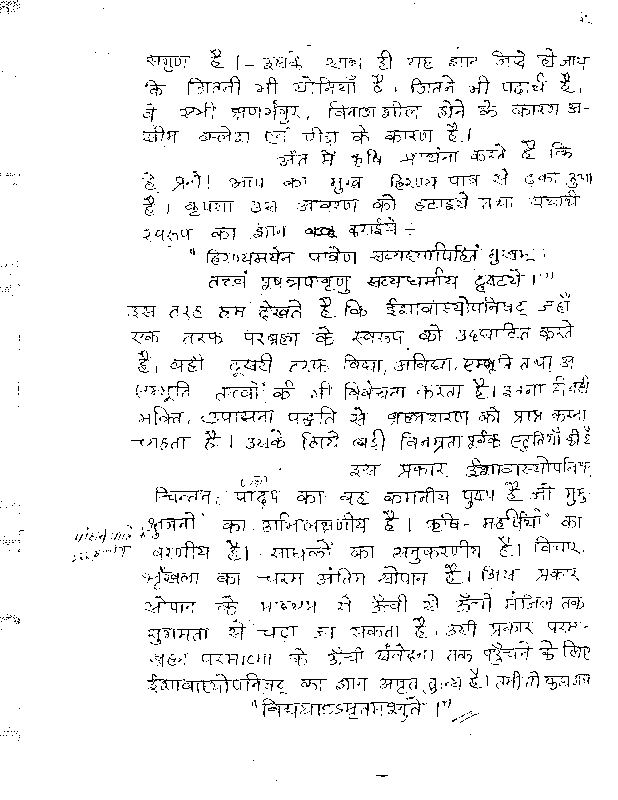 सगुण है।- इसके साथ ही यह ज्ञान जिसे हो जाय
कि जितनी भी योनियाँ है। जितने भी पदार्थ है,
वे सभी क्षणभंगुर, विनाशशील होने के कारण अ-
सीम क्लेश एवं पीड़ा के कारण है।
अंत में ऋषि प्रार्थना करते है कि
हे प्रभो! आप का मुख हिरण्य पात्र से ढ़का हुआ
है। कृपया उस आवरण को हटाइये तथा यथार्थ
स्वरूप का ज्ञान कराईये -
"हिरण्यमयेन पात्रेण सत्यस्यापिहितं मुखम्।
तत्त्वं पूषन्नपावृणु सत्यधर्माय दृष्टये।"
इस तरह हम देखते है कि ईशावास्योपनिषद् जहाँ
एक तरफ परब्रह्म के स्वरूप को उद्घाटित करते
है। वही दूसरी तरफ विद्या, अविद्या, सम्भूति तथा अ
सम्भूति तत्त्वों की भी विवेचना करता है। इतना ही नही
भक्ति, उपासना पद्धति से ब्रह्मशरण को प्राप्त करना
चाहता है। उसके लिये बड़ी विनम्रता पूर्वक स्तुतियाँ की है
इस प्रकार ईशावास्योपनिषद्
चिन्तन, पादप का वह कमनीय पुष्प है जो मुमु-
क्षुजनों का अभिलषणीय है। ऋषि-महर्षियों का
वरणीय है। साधकों का अनुकरणीय है। विचार
श्रृंखला का चरम अंतिम सोपान है। जिस प्रकार
सोपान के माध्यम से ऊँची से ऊँची मंजिल तक
सुगमता से चढा जा सकता है। उसी प्रकार परम-
ब्रह्म परमात्मा के ऊँची संवेदना तक पहुँचने के लिए
ईशावास्योपनिषद् का ज्ञान अमृत तुल्य है। तभी तो कहा गया
"विद्ययाऽऽमृतमश्नुते।"